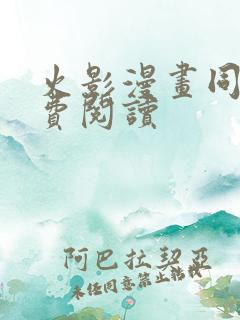 火影漫畫同
費閱讀
阿巴拉契亞
未經同意禁止轉載